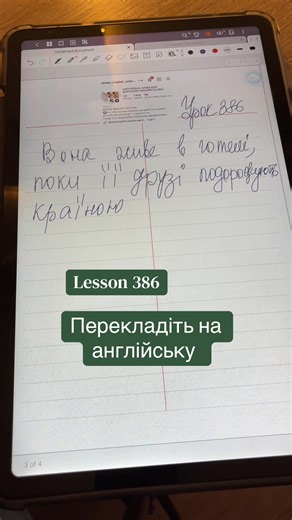 Урок 386
Вона живе в готелі,
поки її друзі подорожують
країною
Lesson 386
Перекладіть на
англійську
3 of 4